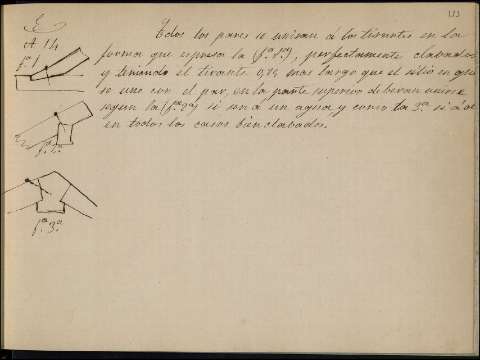 113
E
A 14
fª 1ª
Todos los pares se uniran á los tirantes en la
forma que espresa la (fª 1ª), perfectamente clabados
y teniendo el tirante 0,14 mas largo que el sitio en que
se une con el par, en la parte superior deberan unirse
segun la (fª 2ª) si son a un agua y como la 3ª si á dos
en todos los casos bien clabados.
fª 2ª
fª 3ª